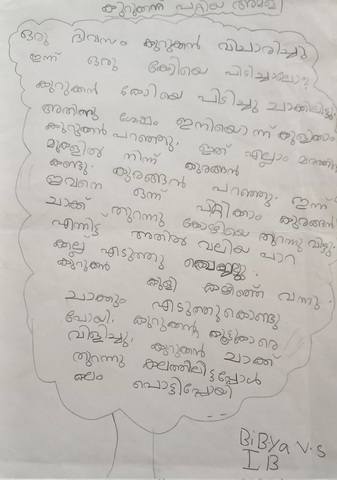 കുറുക്കന് പറ്റിയ അമളി
ഒരു ദിവസം കുറുക്കൻ വിചാരിച്ചു
ഇന്ന് ഒരു കോഴിയെ പിടിച്ചാലോ?
കുറുക്കൻ കോഴിയെ പിടിച്ചു ചാക്കിലിട്ടു
അതിനു ശേഷം ഇനിയൊന്ന് കുളിക്കാം
കുറുക്കൻ പറഞ്ഞു. ഇത് എല്ലാം മരത്തിന്
മുകളിൽ നിന്ന് കുരങ്ങൻ
കണ്ടു. കുരങ്ങൻ പറഞ്ഞു. ഇന്ന്
ഇവനെ ഒന്ന് പറ്റിക്കാം കുരങ്ങൻ
ചാക്ക് തുറന്നു കോഴിയെ തുറന്നു വിട്ടു.
എന്നിട്ട് അതിൽ വലിയ പാറ
കല്ല് എടുത്തു വെച്ചു.
കുറുക്കൻ കുളി കഴിഞ്ഞ് വന്നു.
ചാക്കും എടുത്തുകൊണ്ടു
പോയി. കുറുക്കന്റെ കൂട്ടുകാരെ
വിളിച്ചു. കുറുക്കൻ ചാക്ക്
തുറന്നു കലത്തിലിട്ടപ്പോൾ
കലം പൊട്ടിപ്പോയി
BiBya V.S
I B